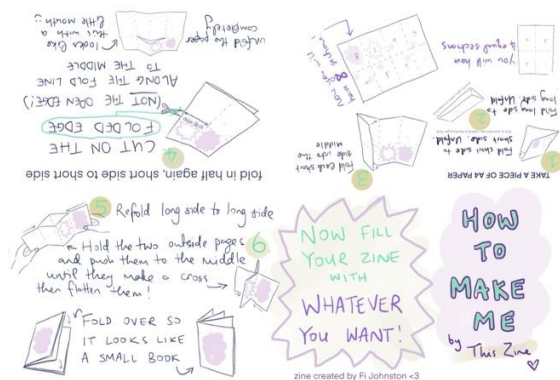 HOW
TO
MAKE
ME
by This Zine
TAKE A PIECE OF A4 PAPER
1
Fold short side to
short side. Unfold.
2
Fold long side to
long side. Unfold
you will have
4 equal sections
3
Fold each short
side into the
middle
fold in half again, short side to short side
4
CUT ON THE
FOLDED EDGE
(NOT THE OPEN EDGE!)
ALONG THE FOLD LINE
TO THE MIDDLE
unfold the paper
completely
looks like
this with a
little mouth
5
Refold long side to long side
6
Hold the two outside pages
and push them to the middle
until they make a cross
then flatten them!
FOLD OVER SO
IT LOOKS LIKE
A SMALL BOOK
NOW FILL
YOUR ZINE
WITH
WHATEVER
YOU WANT!
zine created by Fi Johnston <3